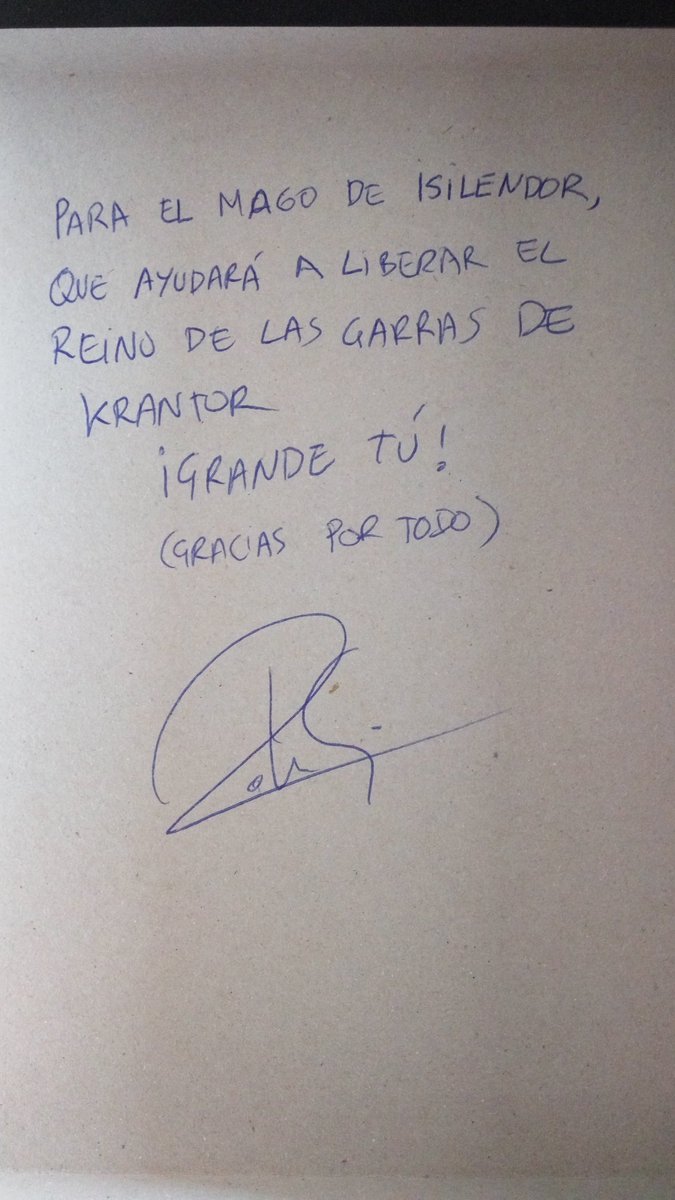 PARA EL MAGO DE ISILENDOR,
QUE AYUDARÁ A LIBERAR EL
REINO DE LAS GARRAS DE
KRANTOR
¡GRANDE TÚ!
(GRACIAS POR TODO)